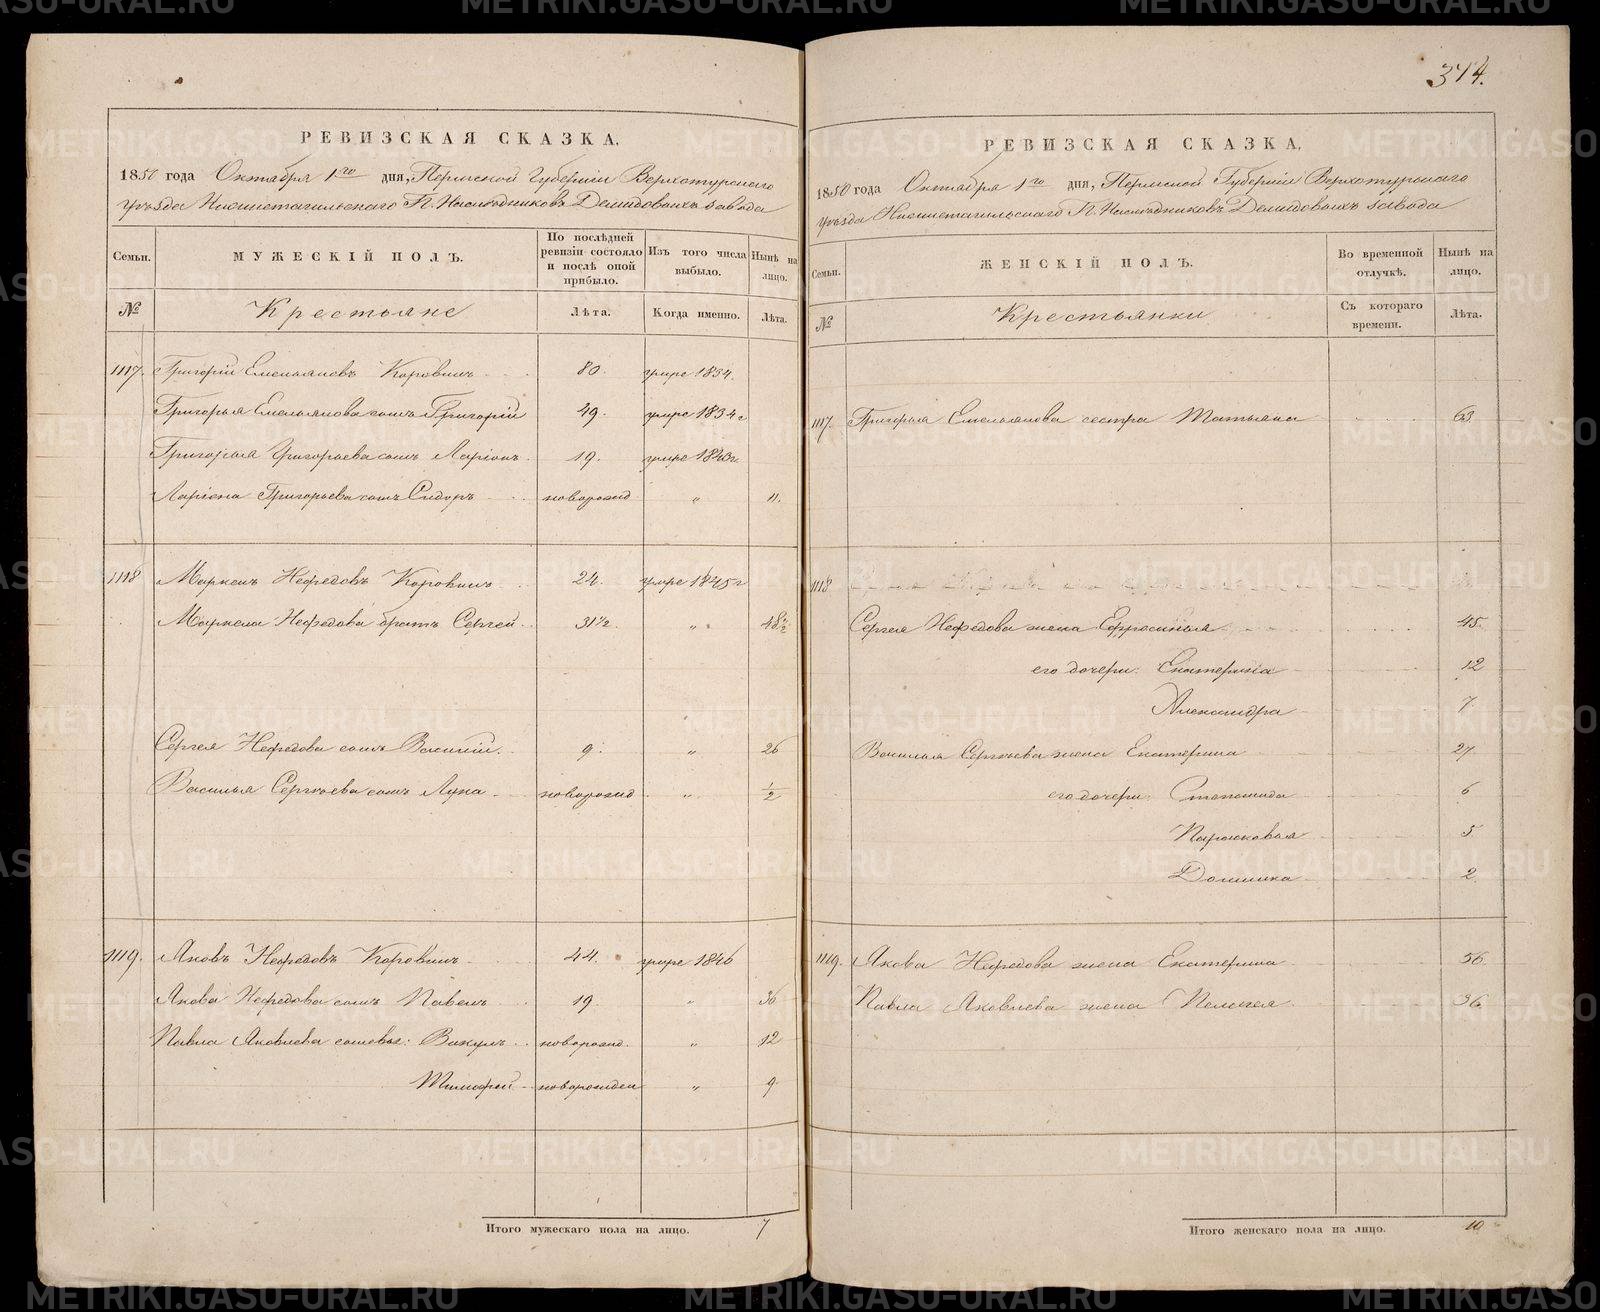 374.
РЕВИЗСКАЯ СКАЗКА.
1850 года Октября 1го дня, Пермской Губерніи Верхотурскаго
уѣзда Нижнетагильскаго Г.г. Наслѣдниковъ Демидовыхъ завода
Семьи. МУЖЕСКІЙ ПОЛЪ. По послѣдней ревизіи состояло и послѣ оной прибыло. Изъ того числа выбыло. Нынѣ на лицо.
№ Крестьяне Лѣта. Когда именно. Лѣта.
1117. Григорій Емельяновъ Коровинъ 80. умре 1834.
Григорья Емельянова сынъ Григорій 49. умре 1834 г
Григорья Григорьева сынъ Ларіонъ 19. умре 1843 г.
Ларіона Григорьева сынъ Сидоръ новорожд " 11.
1118 Маркелъ Нефедовъ Коровинъ 24. умре 1845 г
Маркела Нефедова братъ Сергей 31½ " 48½
Сергея Нефедова сынъ Василій 9. " 26
Василья Сергѣева сынъ Лука новорожд " ½
1119. Яковъ Нефедовъ Коровинъ 44. умре 1846
Якова Нефедова сынъ Павелъ 19. " 36
Павла Яковлева сыновья: Викулъ новорожд. " 12
Тимофей новорожден " 9
Итого мужескаго пола на лицо. 7
РЕВИЗСКАЯ СКАЗКА.
1850 года Октября 1го дня, Пермской Губерніи Верхотурскаго
уѣзда Нижнетагильскаго Г.г. Наслѣдниковъ Демидовыхъ завода
Семьи. ЖЕНСКІЙ ПОЛЪ. Во временной отлучкѣ. Нынѣ на лицо.
№ Крестьянки Съ котораго времени. Лѣта.
1117. Григорья Емельянова сестра Татьяна 63
1118
Сергея Нефедова жена Ефросинья 45.
его дочери: Екатерина 12
Александра 7
Василья Сергѣева жена Екатерина 27
его дочери: Степанида 6
Парасковья 5
Домника 2
1119. Якова Нефедова жена Екатерина 56.
Павла Яковлева жена Пелагея 36
Итого женскаго пола на лицо. 10
METRIKI.GASO-URAL.RU